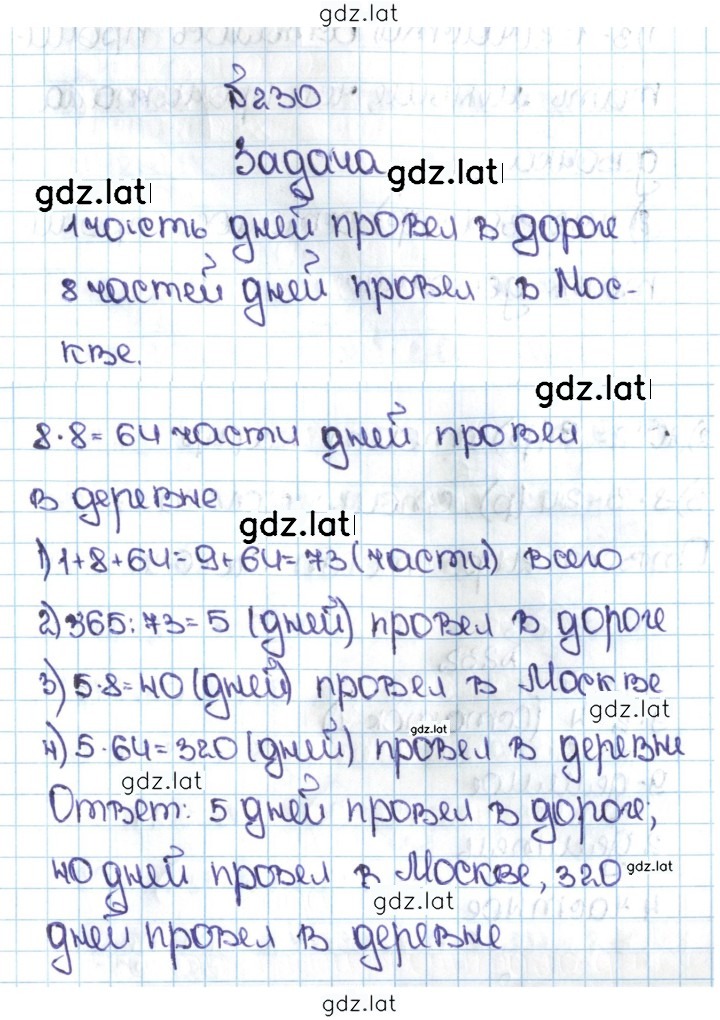 gdz.lat
№230
Задача
gdz.lat
gdz.lat
1 часть дней провел в дороге
8 частей дней провел в Мос-
кве.
gdz.lat
8·8=64 части дней провел
в деревне
gdz.lat
1) 1+8+64=9+64=73 (части) всего
2) 365:73=5 (дней) провел в дороге
3) 5·8=40 (дней) провел в Москве
gdz.lat
gdz.lat
4) 5·64=320 (дней) провел в деревне
gdz.lat
Ответ: 5 дней провел в дороге,
40 дней провел в Москве, 320
gdz.lat
gdz.lat
дней провел в деревне
gdz.lat